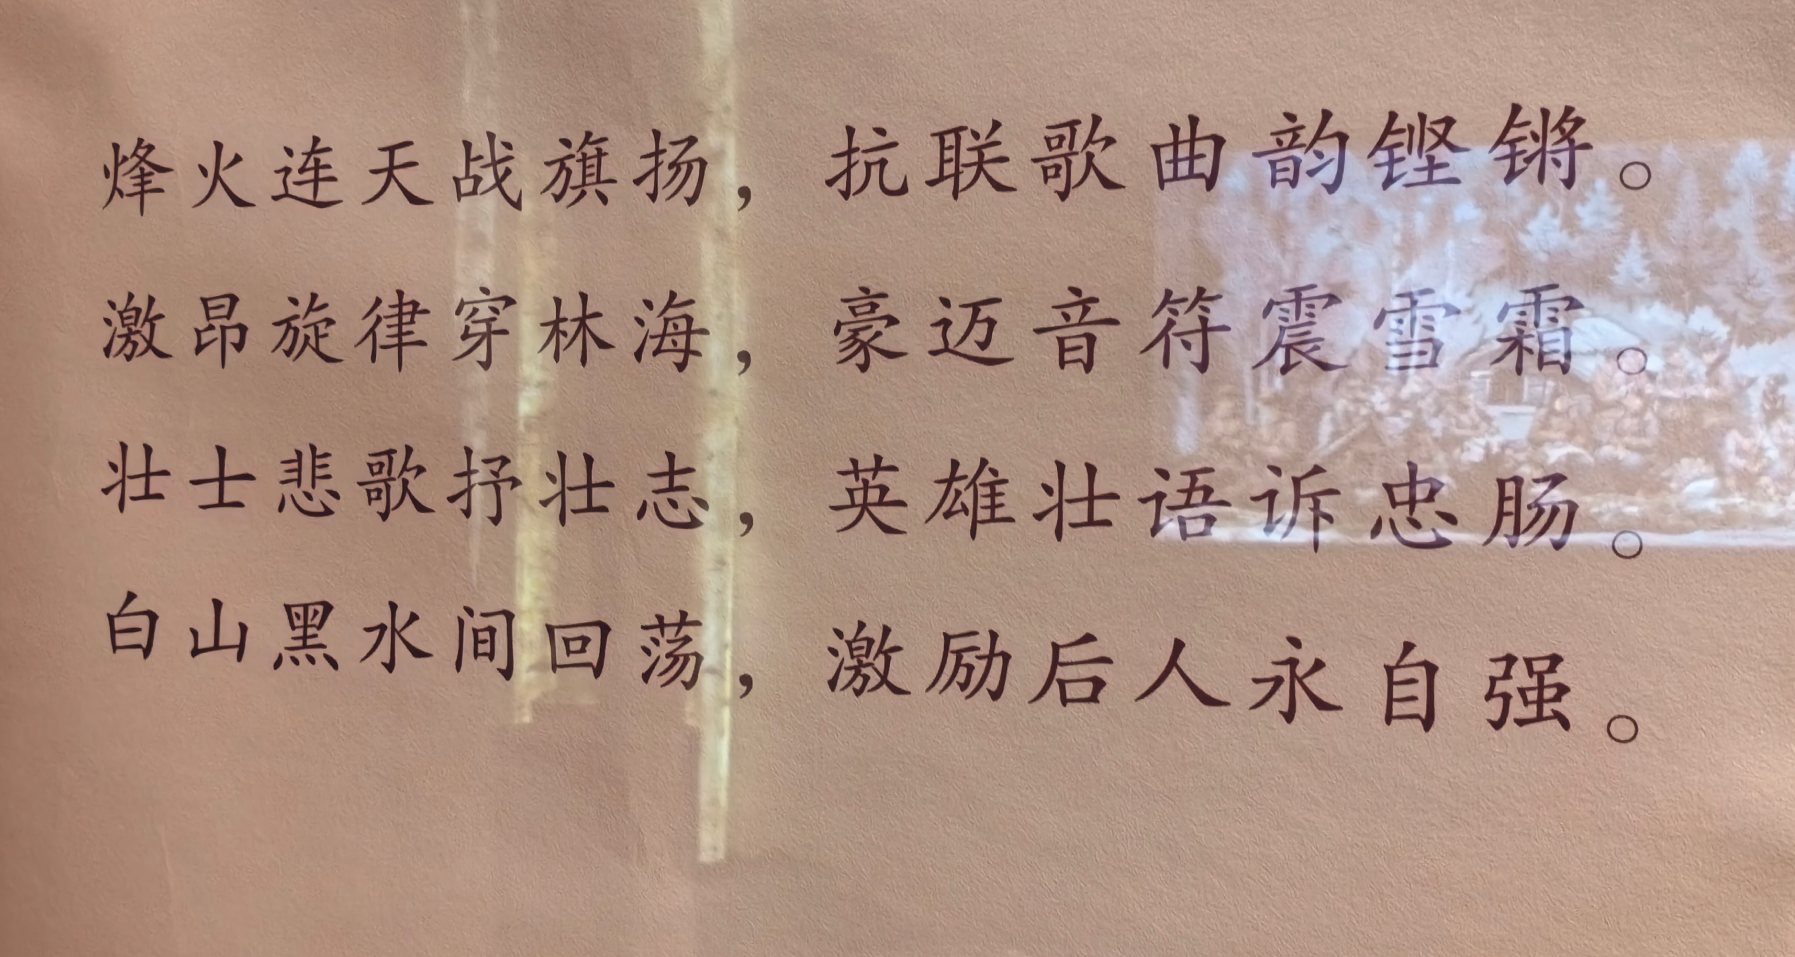 烽火连天战旗扬，抗联歌曲韵铿锵。
激昂旋律穿林海，豪迈音符震雪霜。
壮士悲歌抒壮志，英雄壮语诉忠肠。
白山黑水间回荡，激励后人永自强。